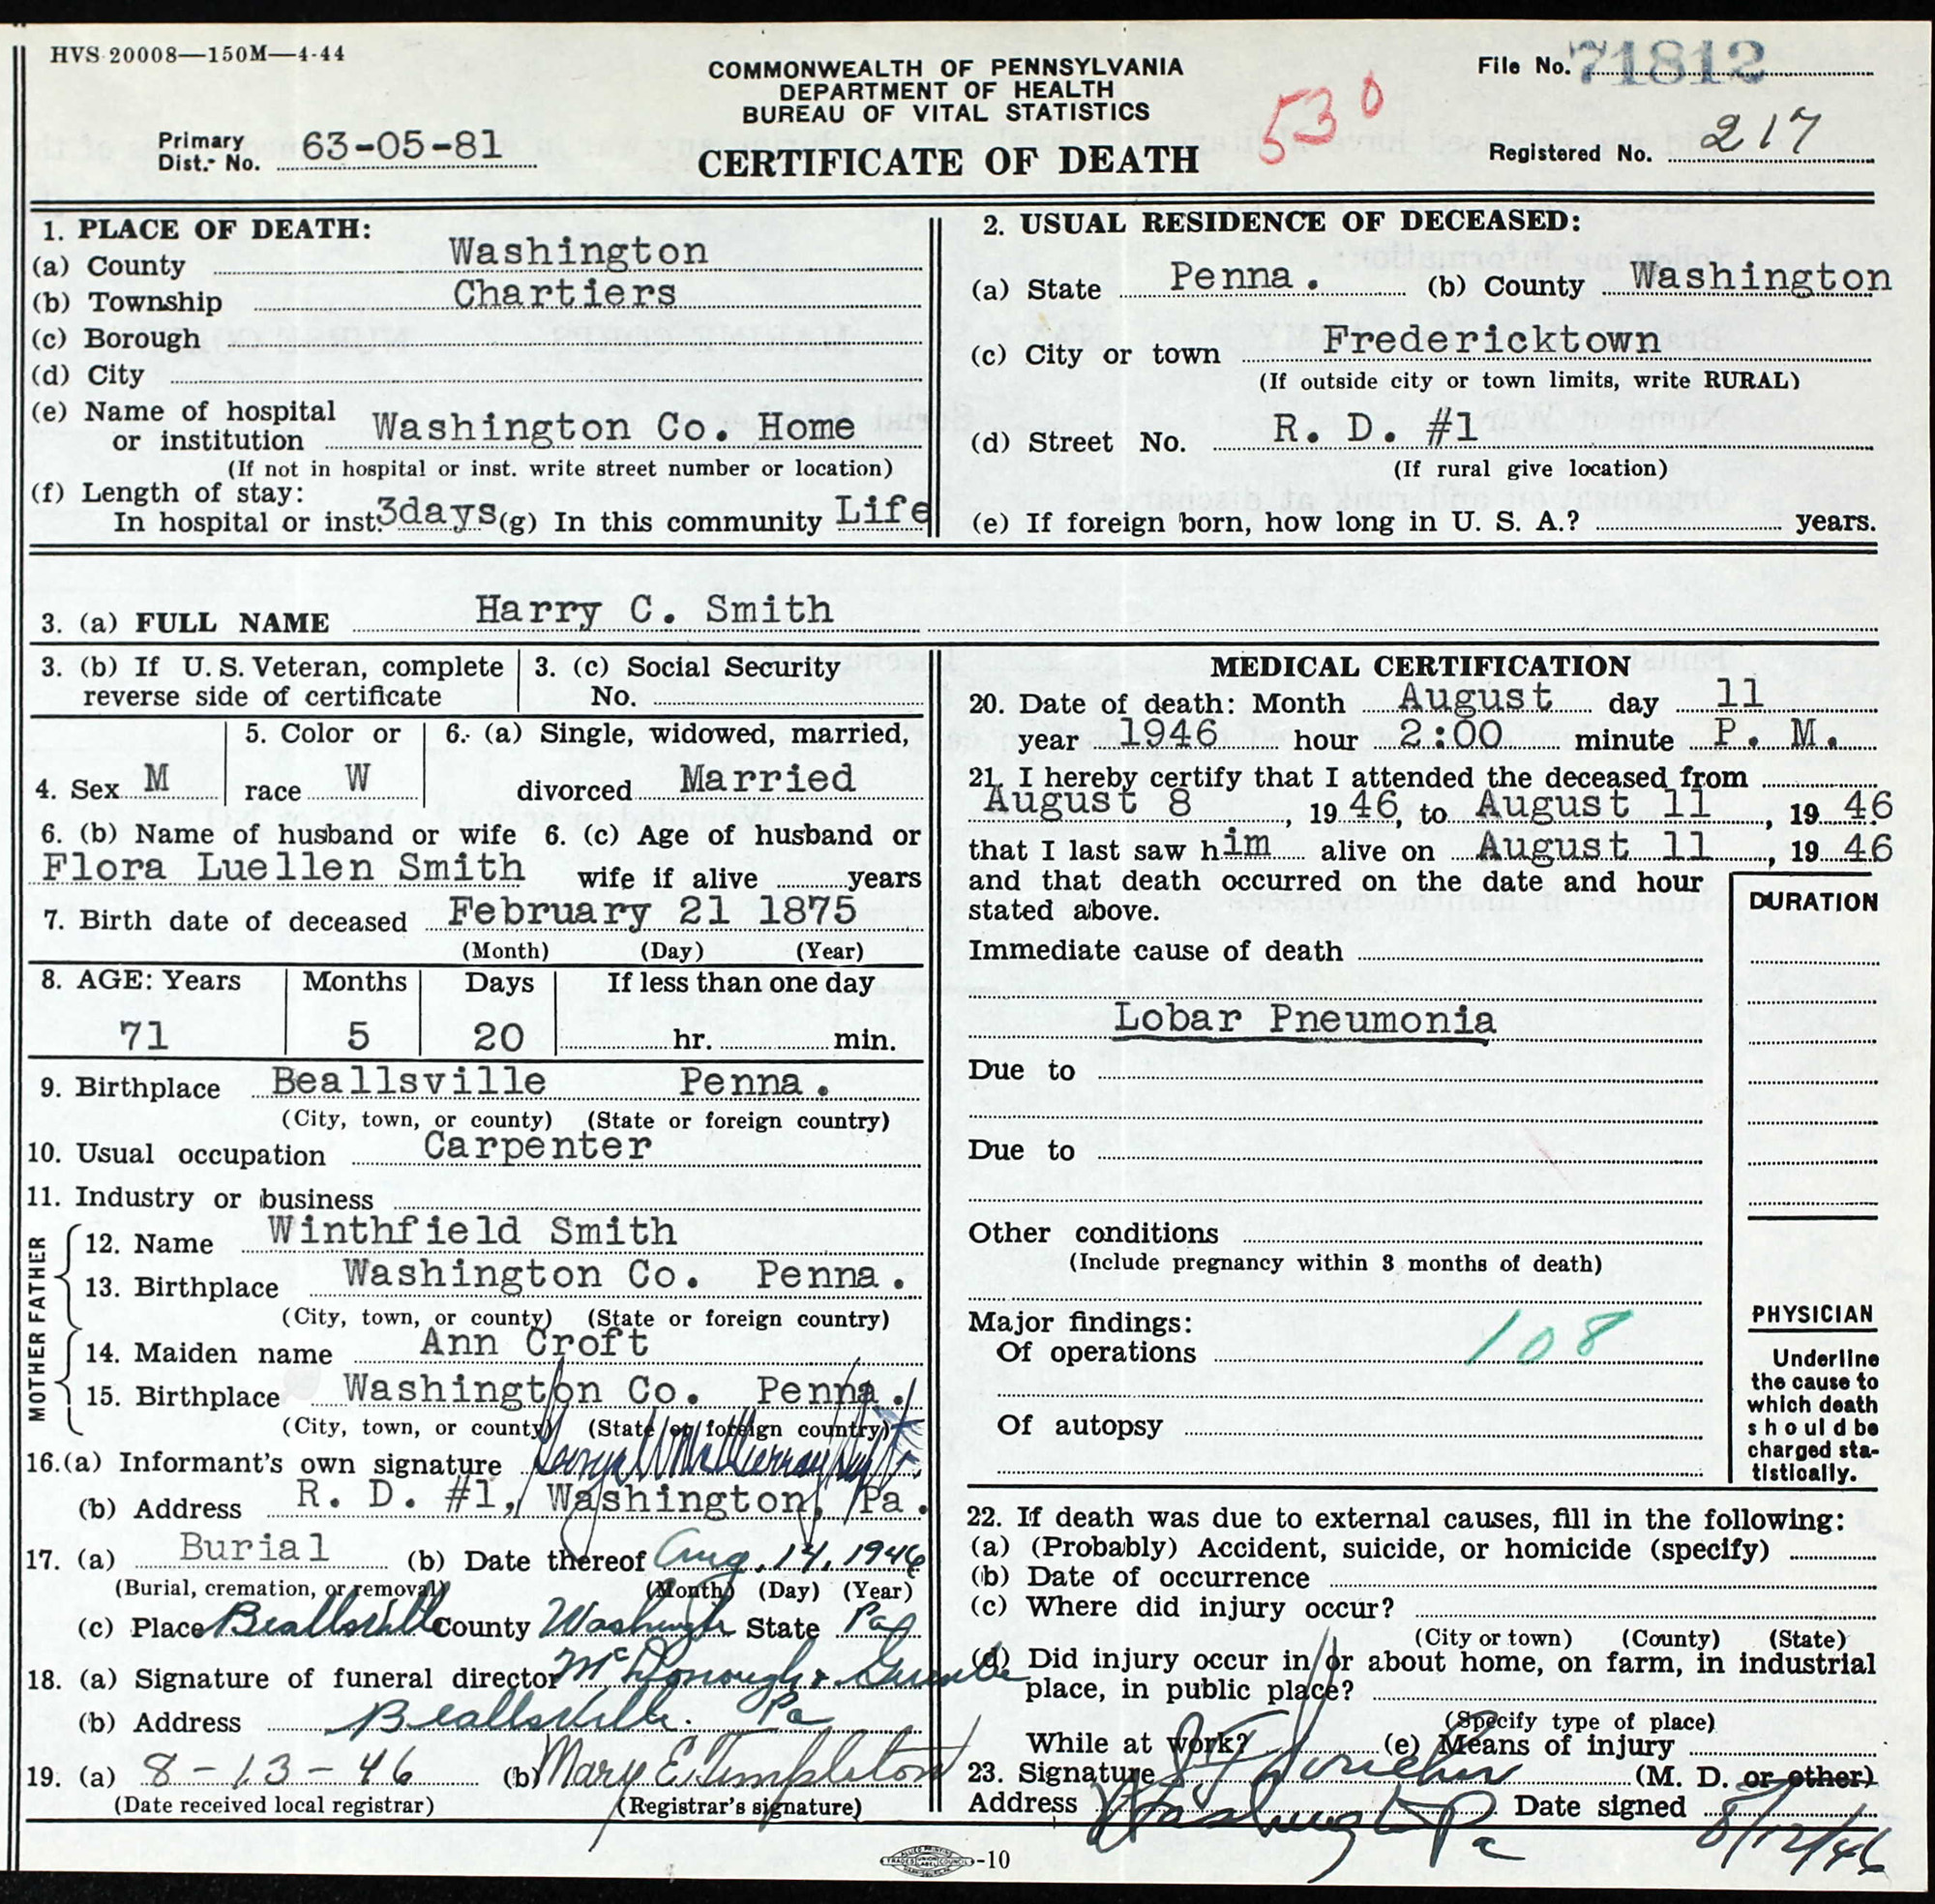 HVS 20008—150M—4-44
COMMONWEALTH OF PENNSYLVANIA
DEPARTMENT OF HEALTH
BUREAU OF VITAL STATISTICS
CERTIFICATE OF DEATH
530
File No. 71812
Primary Dist. No. 63-05-81
Registered No. 217
1. PLACE OF DEATH:
(a) County Washington
(b) Township Chartiers
(c) Borough
(d) City
(e) Name of hospital
or institution Washington Co. Home
(If not in hospital or inst. write street number or location)
(f) Length of stay:
In hospital or inst. 3days (g) In this community Life
2. USUAL RESIDENCE OF DECEASED:
(a) State Penna. (b) County Washington
(c) City or town Fredericktown
(If outside city or town limits, write RURAL)
(d) Street No. R. D. #1
(If rural give location)
(e) If foreign born, how long in U. S. A.? years.
3. (a) FULL NAME Harry C. Smith
3. (b) If U. S. Veteran, complete
reverse side of certificate
3. (c) Social Security
No.
4. Sex M
5. Color or
race W
6. (a) Single, widowed, married,
divorced Married
6. (b) Name of husband or wife
Flora Luellen Smith
6. (c) Age of husband or
wife if alive years
7. Birth date of deceased February 21 1875
(Month) (Day) (Year)
8. AGE: Years Months Days If less than one day
71 5 20 hr. min.
9. Birthplace Beallsville Penna.
(City, town, or county) (State or foreign country)
10. Usual occupation Carpenter
11. Industry or business
FATHER
12. Name Winthfield Smith
13. Birthplace Washington Co. Penna.
(City, town, or county) (State or foreign country)
MOTHER
14. Maiden name Ann Croft
15. Birthplace Washington Co. Penna.
(City, town, or county) (State or foreign country)
16.(a) Informant's own signature
(b) Address R. D. #1, Washington, Pa.
17. (a) Burial (b) Date thereof Aug. 14, 1946
(Burial, cremation, or removal) (Month) (Day) (Year)
(c) Place Beallsville County Washington State Pa
18. (a) Signature of funeral director McDonough &
(b) Address Beallsville. Pa
19. (a) 8-13-46 (b) Mary E. Templeton
(Date received local registrar) (Registrar's signature)
MEDICAL CERTIFICATION
20. Date of death: Month August day 11
year 1946 hour 2:00 minute P. M.
21. I hereby certify that I attended the deceased from
August 8, 19 46, to August 11, 19 46
that I last saw him alive on August 11, 19 46
and that death occurred on the date and hour
stated above.
DURATION
Immediate cause of death
Lobar Pneumonia
Due to
Due to
Other conditions
(Include pregnancy within 3 months of death)
Major findings:
Of operations
108
Of autopsy
PHYSICIAN
Underline
the cause to
which death
should be
charged sta-
tistically.
22. If death was due to external causes, fill in the following:
(a) (Probably) Accident, suicide, or homicide (specify)
(b) Date of occurrence
(c) Where did injury occur?
(City or town) (County) (State)
(d) Did injury occur in or about home, on farm, in industrial
place, in public place?
(Specify type of place)
While at work? (e) Means of injury
23. Signature (M. D. or other)
Address Washington Pa Date signed 8/12/46
-10